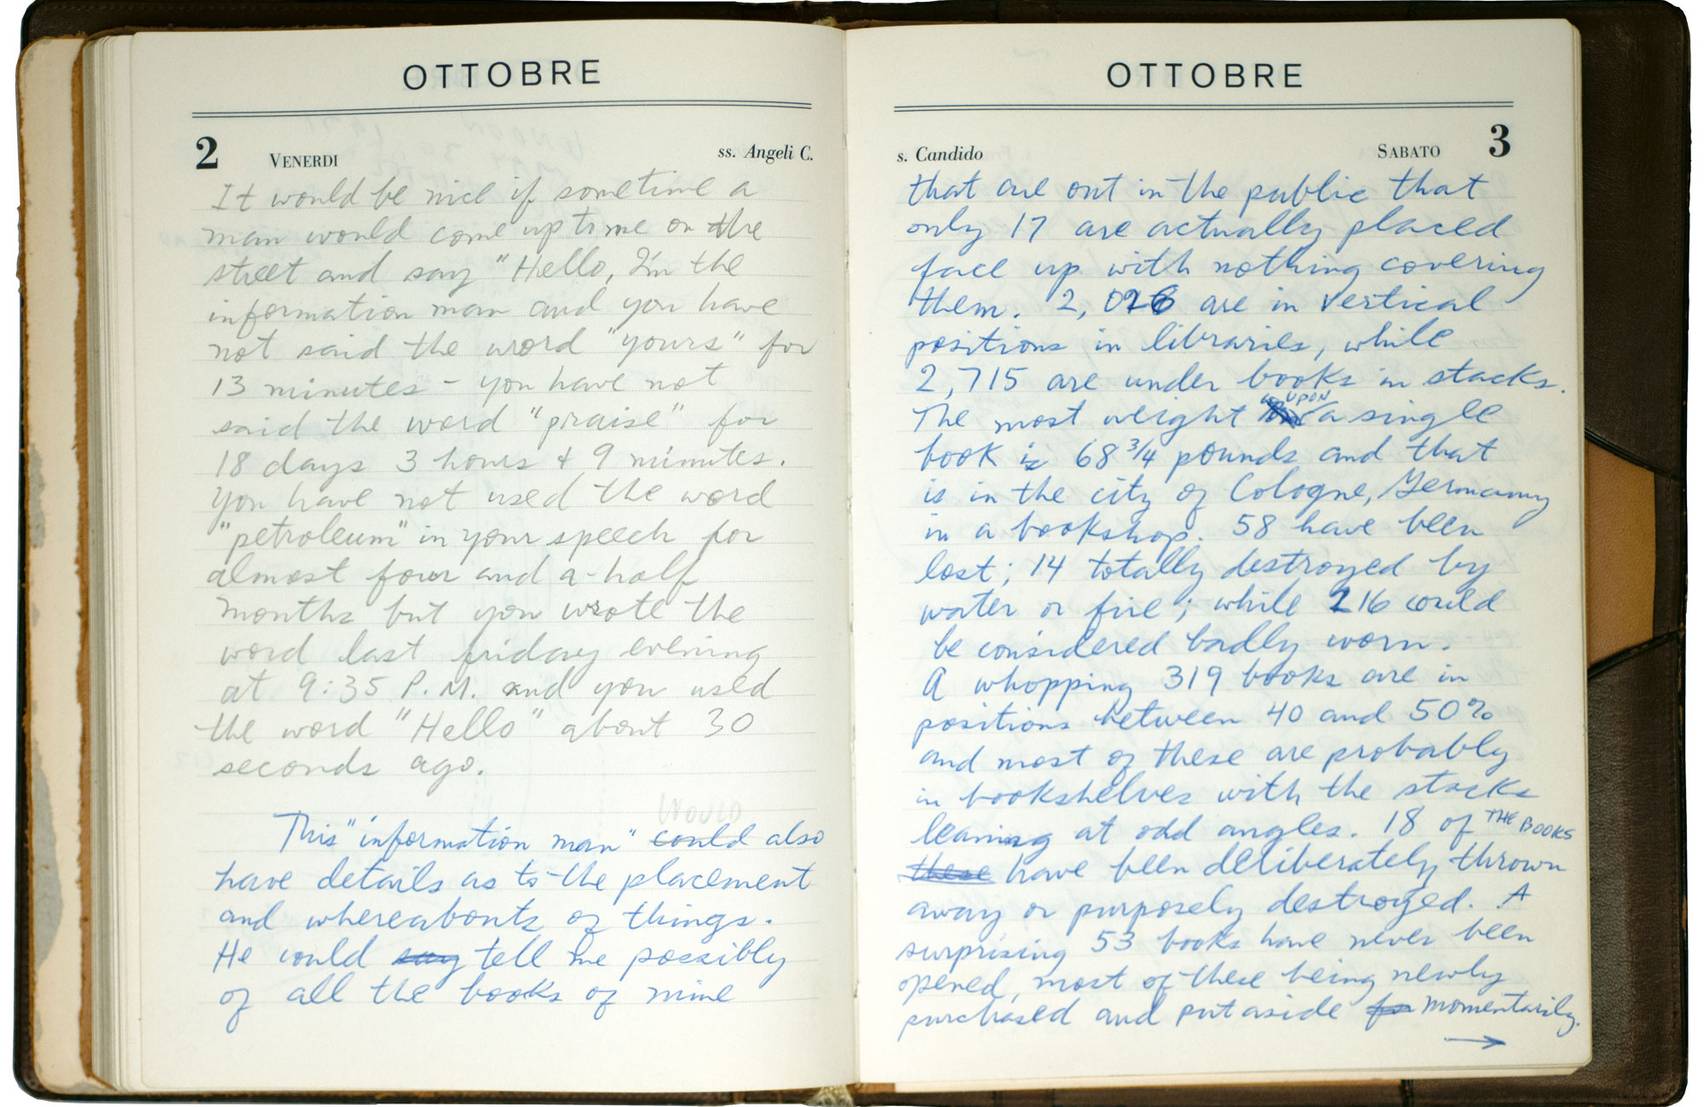 OTTOBRE
2 VENERDI ss. Angeli C.
It would be nice if sometime a
man would come up to me on the
street and say "Hello, I'm the
information man and you have
not said the word "yours" for
13 minutes - you have not
said the word "praise" for
18 days 3 hours & 9 minutes.
You have not used the word
"petroleum" in your speech for
almost four and a-half
months but you wrote the
word last friday evening
at 9:35 P.M. and you used
the word "Hello" about 30
seconds ago.
WOULD
This "information man" could also
have details as to the placement
and whereabouts of things.
He could say tell me possibly
of all the books of mine
OTTOBRE
s. Candido SABATO 3
that are out in the public that
only 17 are actually placed
face up with nothing covering
them. 2,026 are in vertical
positions in libraries, while
2,715 are under books in stacks.
UPON
The most weight a single
book is 68 3/4 pounds and that
is in the city of Cologne, Germany
in a bookshop. 58 have been
lost; 14 totally destroyed by
water or fire; while 216 could
be considered badly worn.
A whopping 319 books are in
positions between 40 and 50%
and most of these are probably
in bookshelves with the stacks
leaning at odd angles. 18 of THE BOOKS
these have been deliberately thrown
away or purposely destroyed. A
surprising 53 books have never been
opened, most of these being newly
purchased and put aside for momentarily.
→